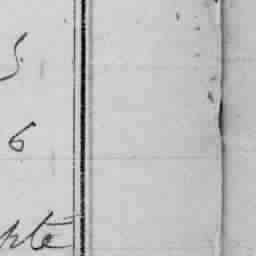 5
6
pte